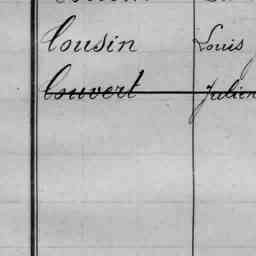 Cousin Louis
Couvert Julien